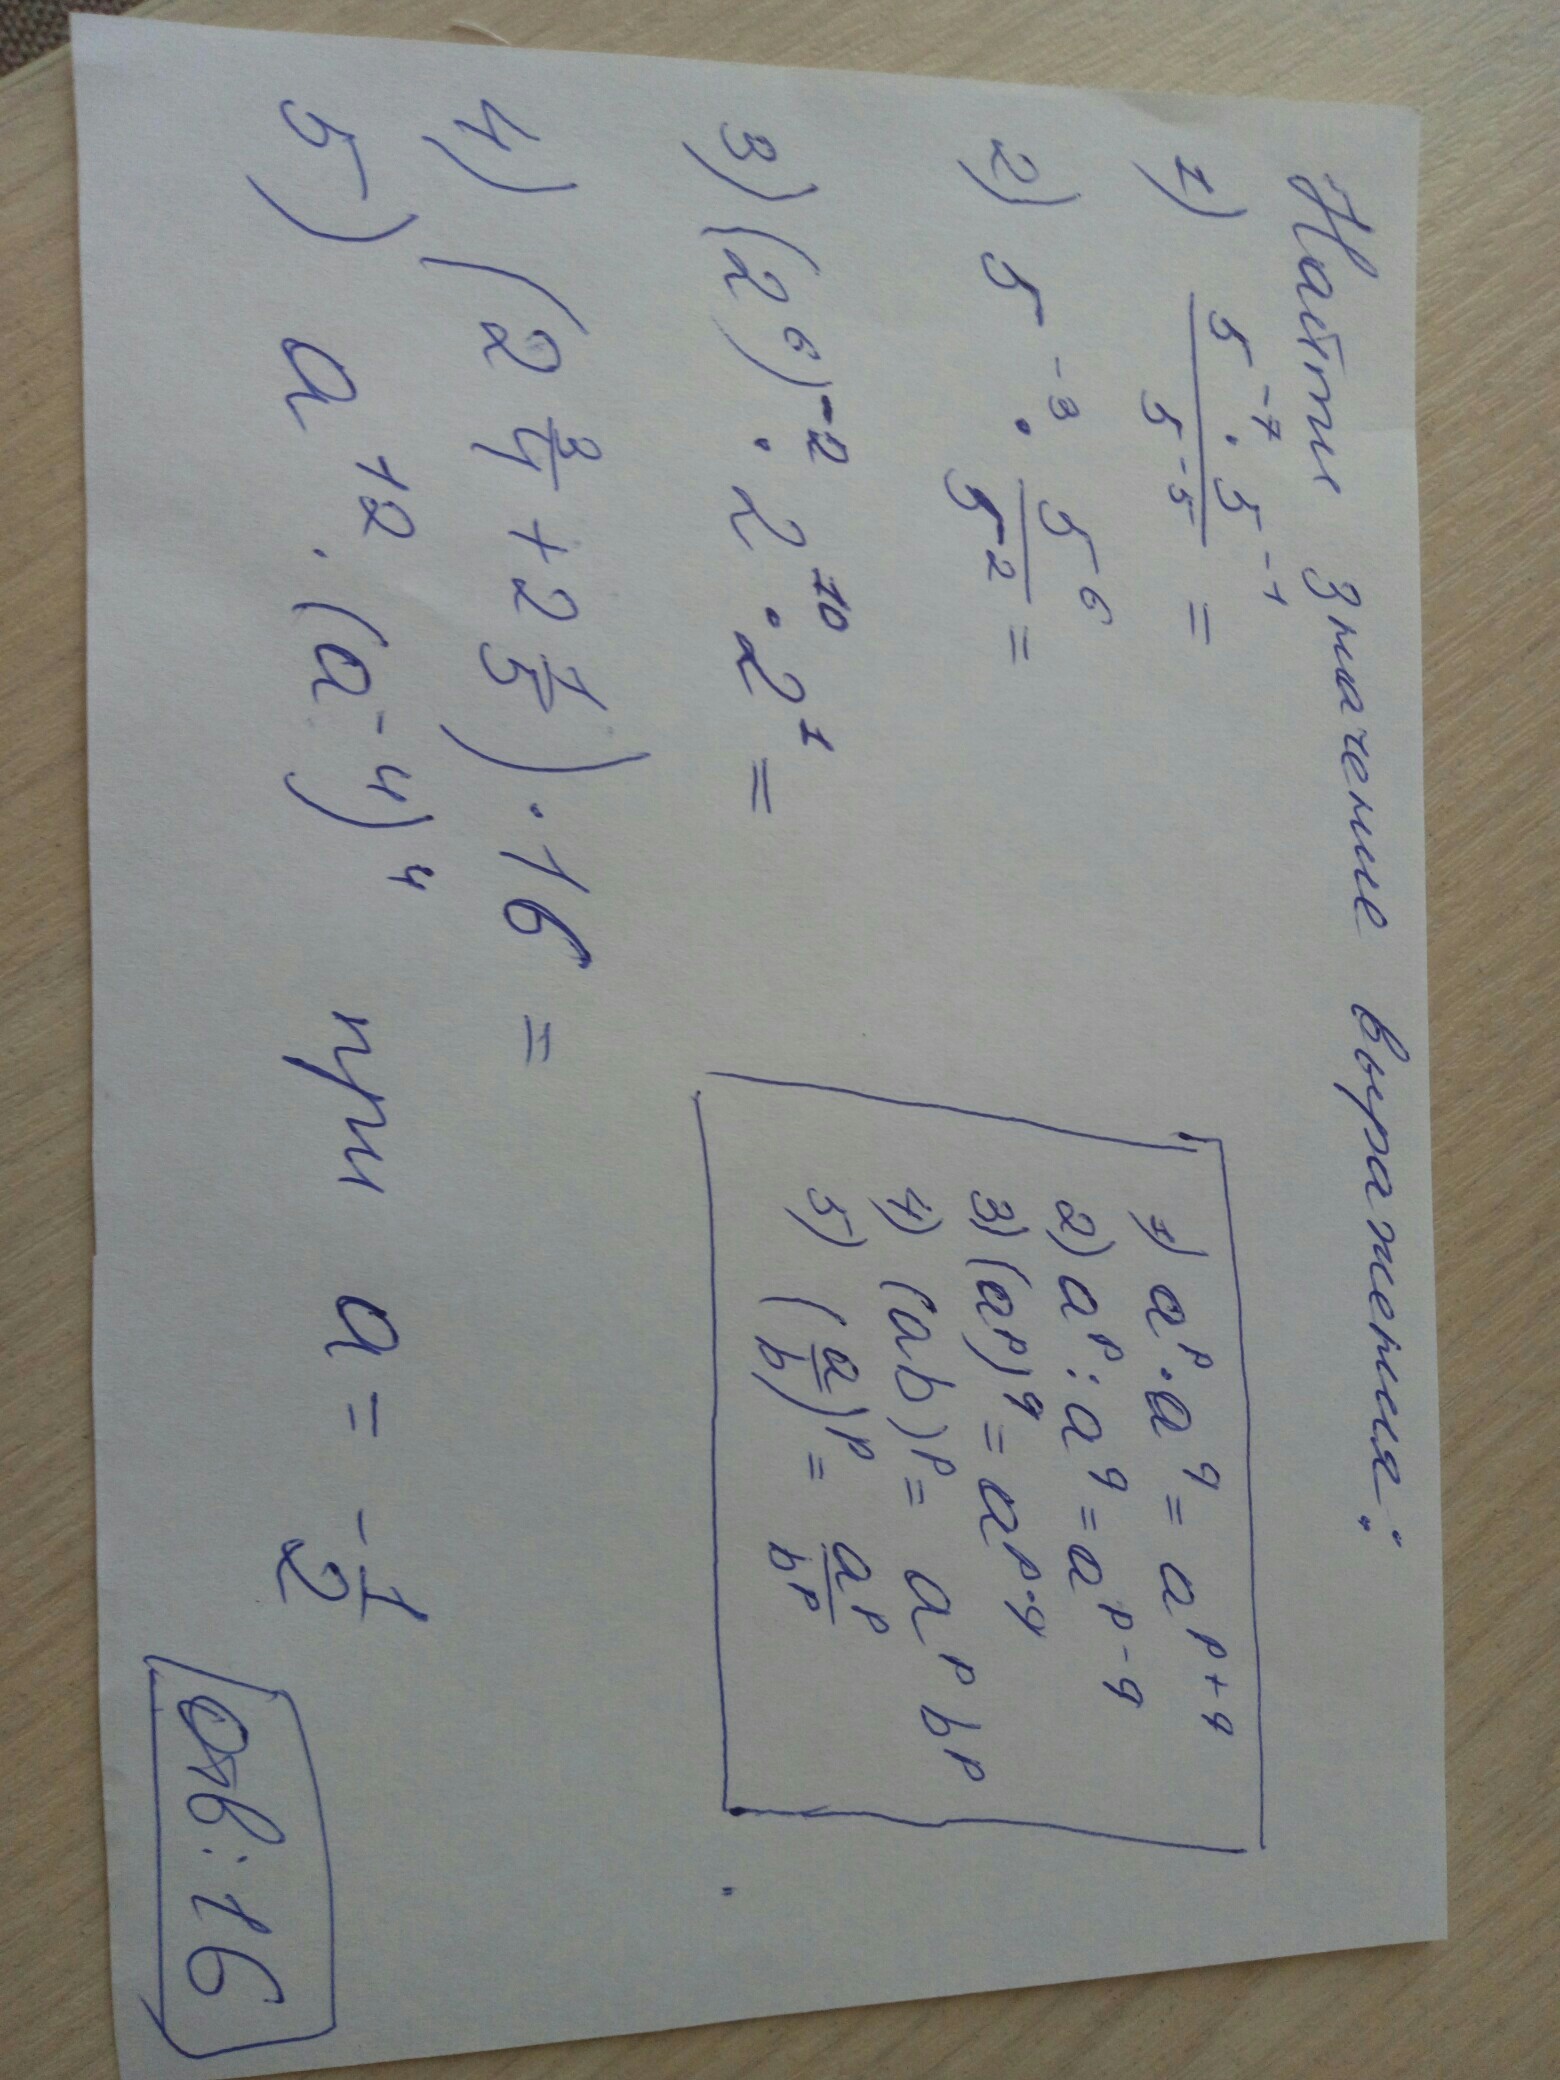 Найти значение выражения:
1) \frac{5^{-7} · 5^{-1}}{5^{-5}} =
2) 5^{-3} · \frac{5^6}{5^2} =
3) (2^6)^{-2} · 2^{10} · 2^1 =
4) (2\frac{3}{4} + 2\frac{1}{5}) · 16 =
5) a^{12} · (a^{-4})^4 при a = -\frac{1}{2}
1) a^p · a^q = a^{p+q}
2) a^p : a^q = a^{p-q}
3) (a^p)^q = a^{p·q}
4) (ab)^p = a^p b^p
5) (\frac{a}{b})^p = \frac{a^p}{b^p}
Отв: 16